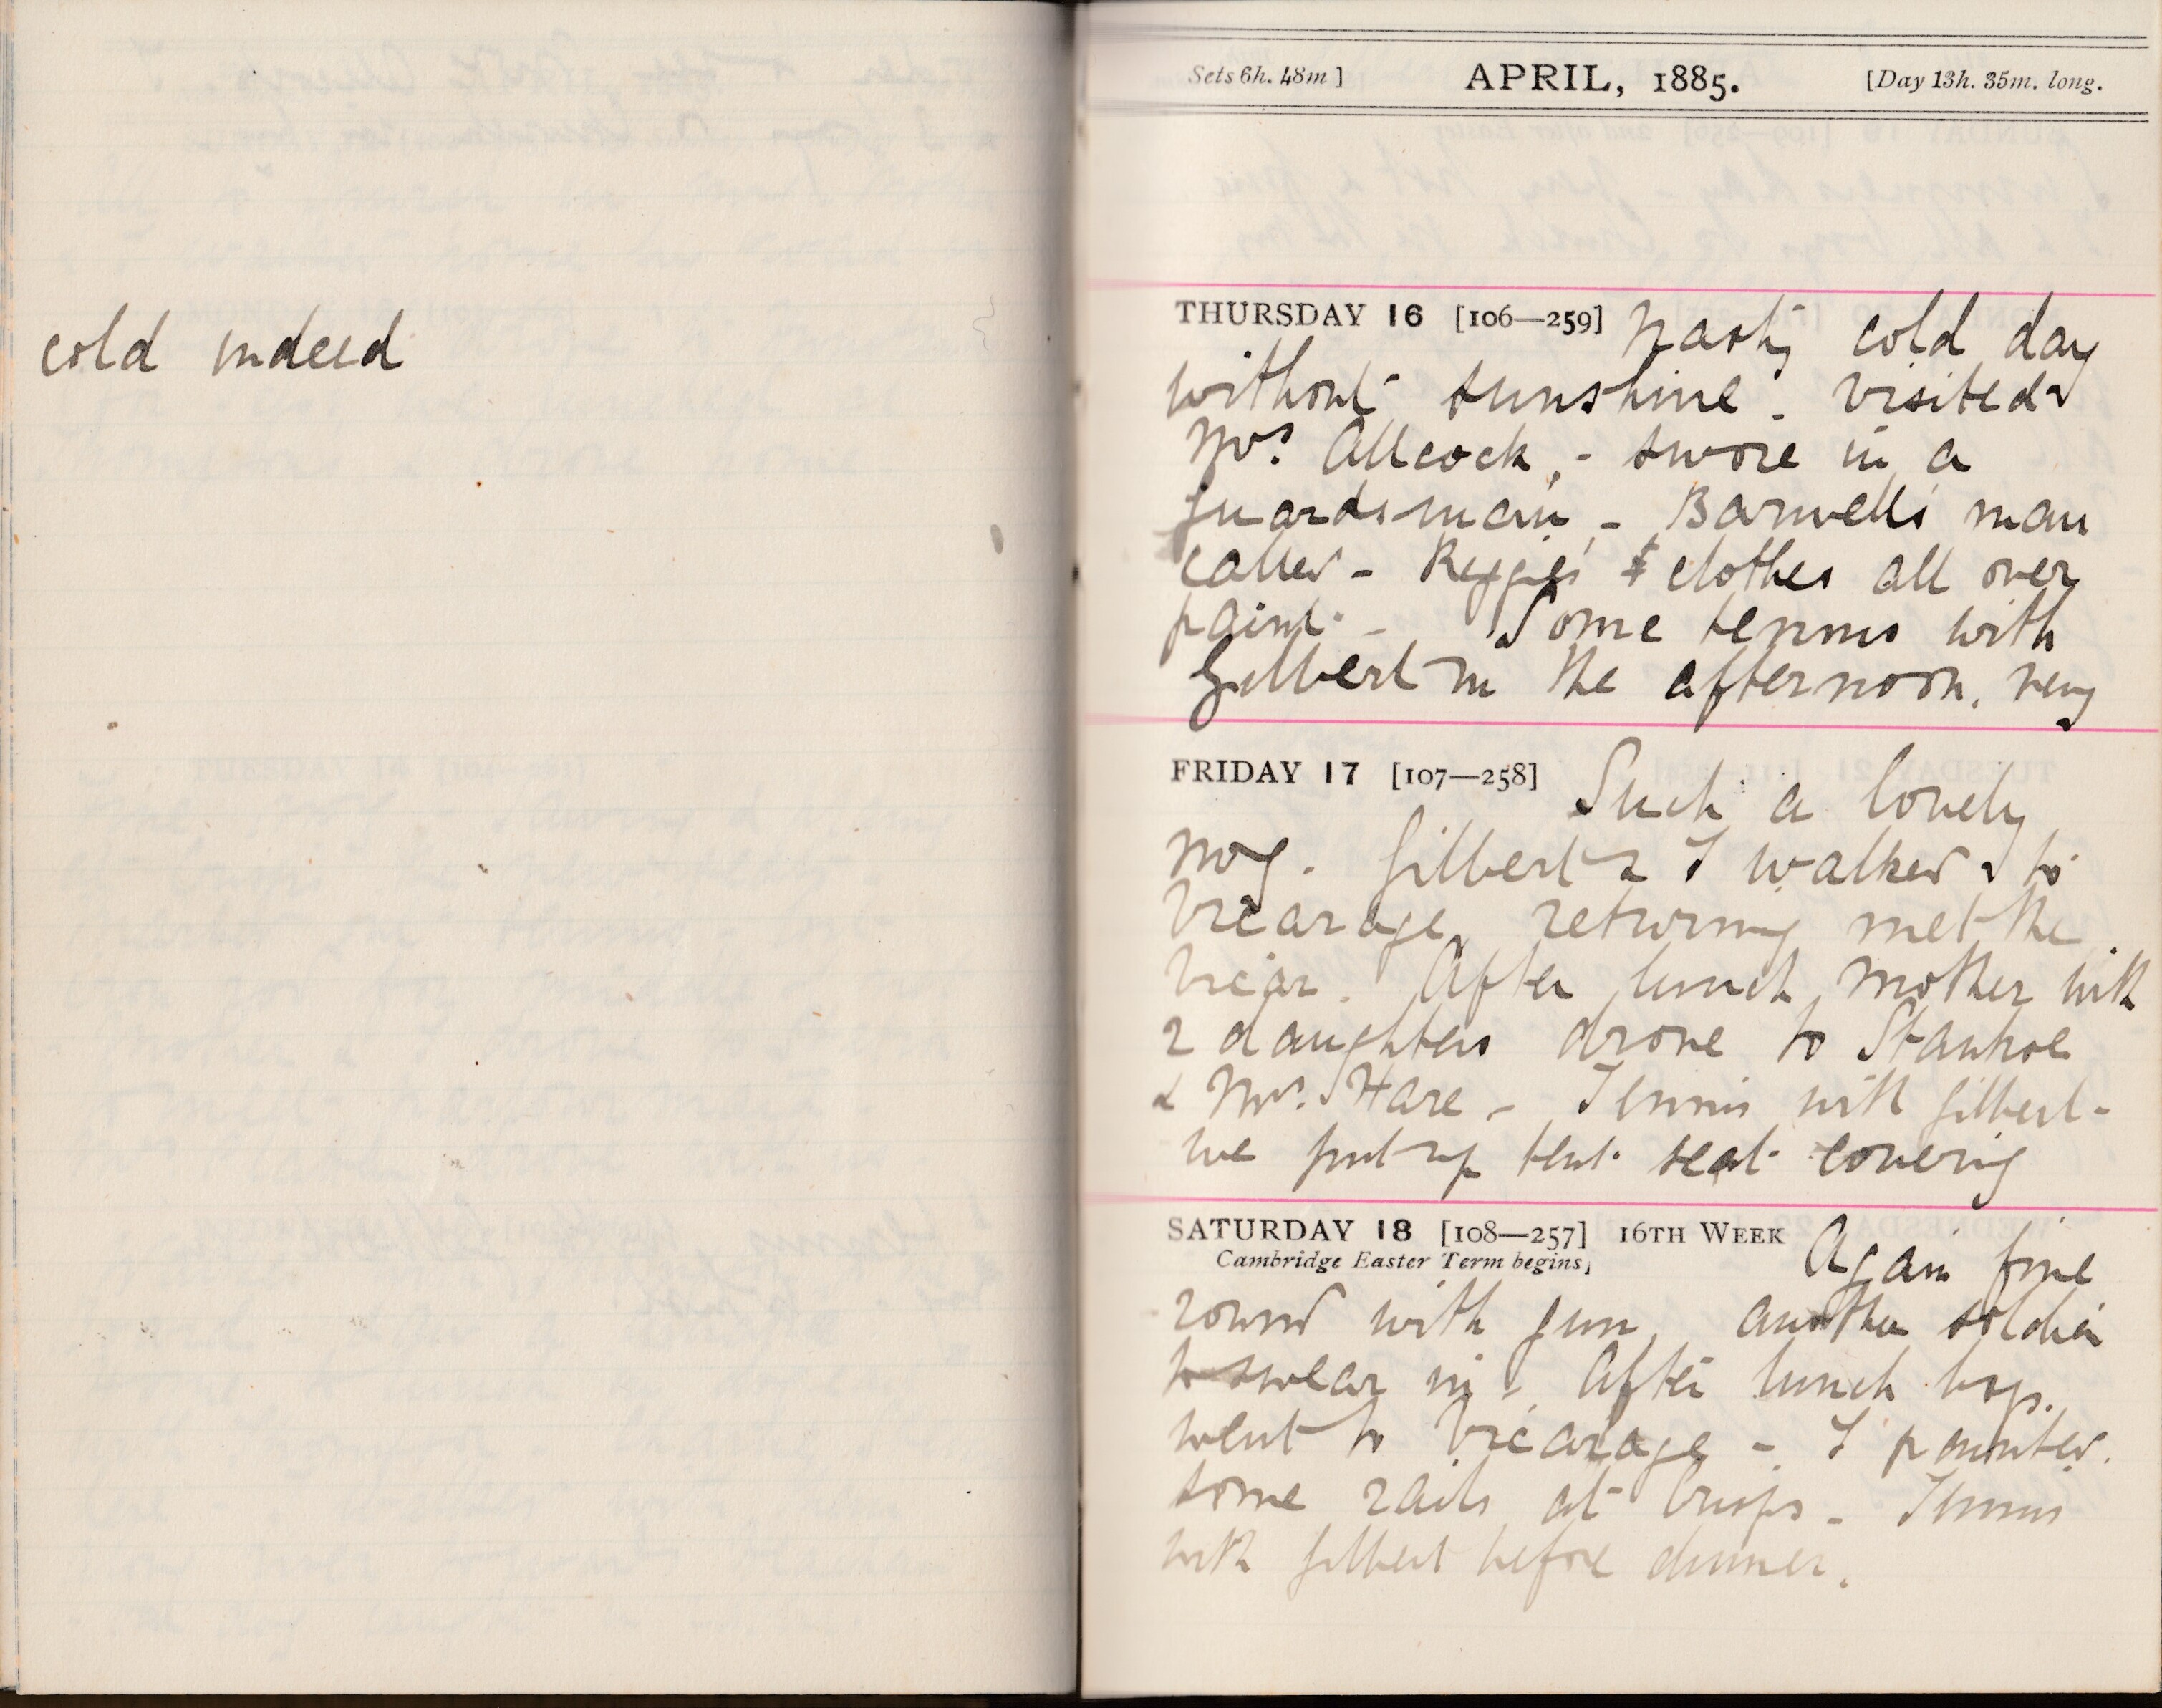 cold indeed
Sets 6h. 48m ] APRIL, 1885. [Day 13h. 35m. long.
THURSDAY 16 [106—259] Nasty cold day
without sunshine - visited
Mrs. Allcock, - swore in a
guardsman, - Barwell's man
called - Reggie's & clothes all over
paint - Some tennis with
Gilbert in the afternoon. very
FRIDAY 17 [107—258] Such a lovely
mog. Gilbert & I walked to
Vicarage, returning met the
Vicar. After lunch, Mother with
2 daughters drove to Stanhoe
& Mrs. Hare - Tennis with Gilbert -
we put up tent seat covering
SATURDAY 18 [108—257] 16TH WEEK Again fine
Cambridge Easter Term begins,
round with gun, another soldier
to swear in, After lunch boys.
went to Vicarage - I painted.
some rails at - Tennis
with Gilbert before dinner.